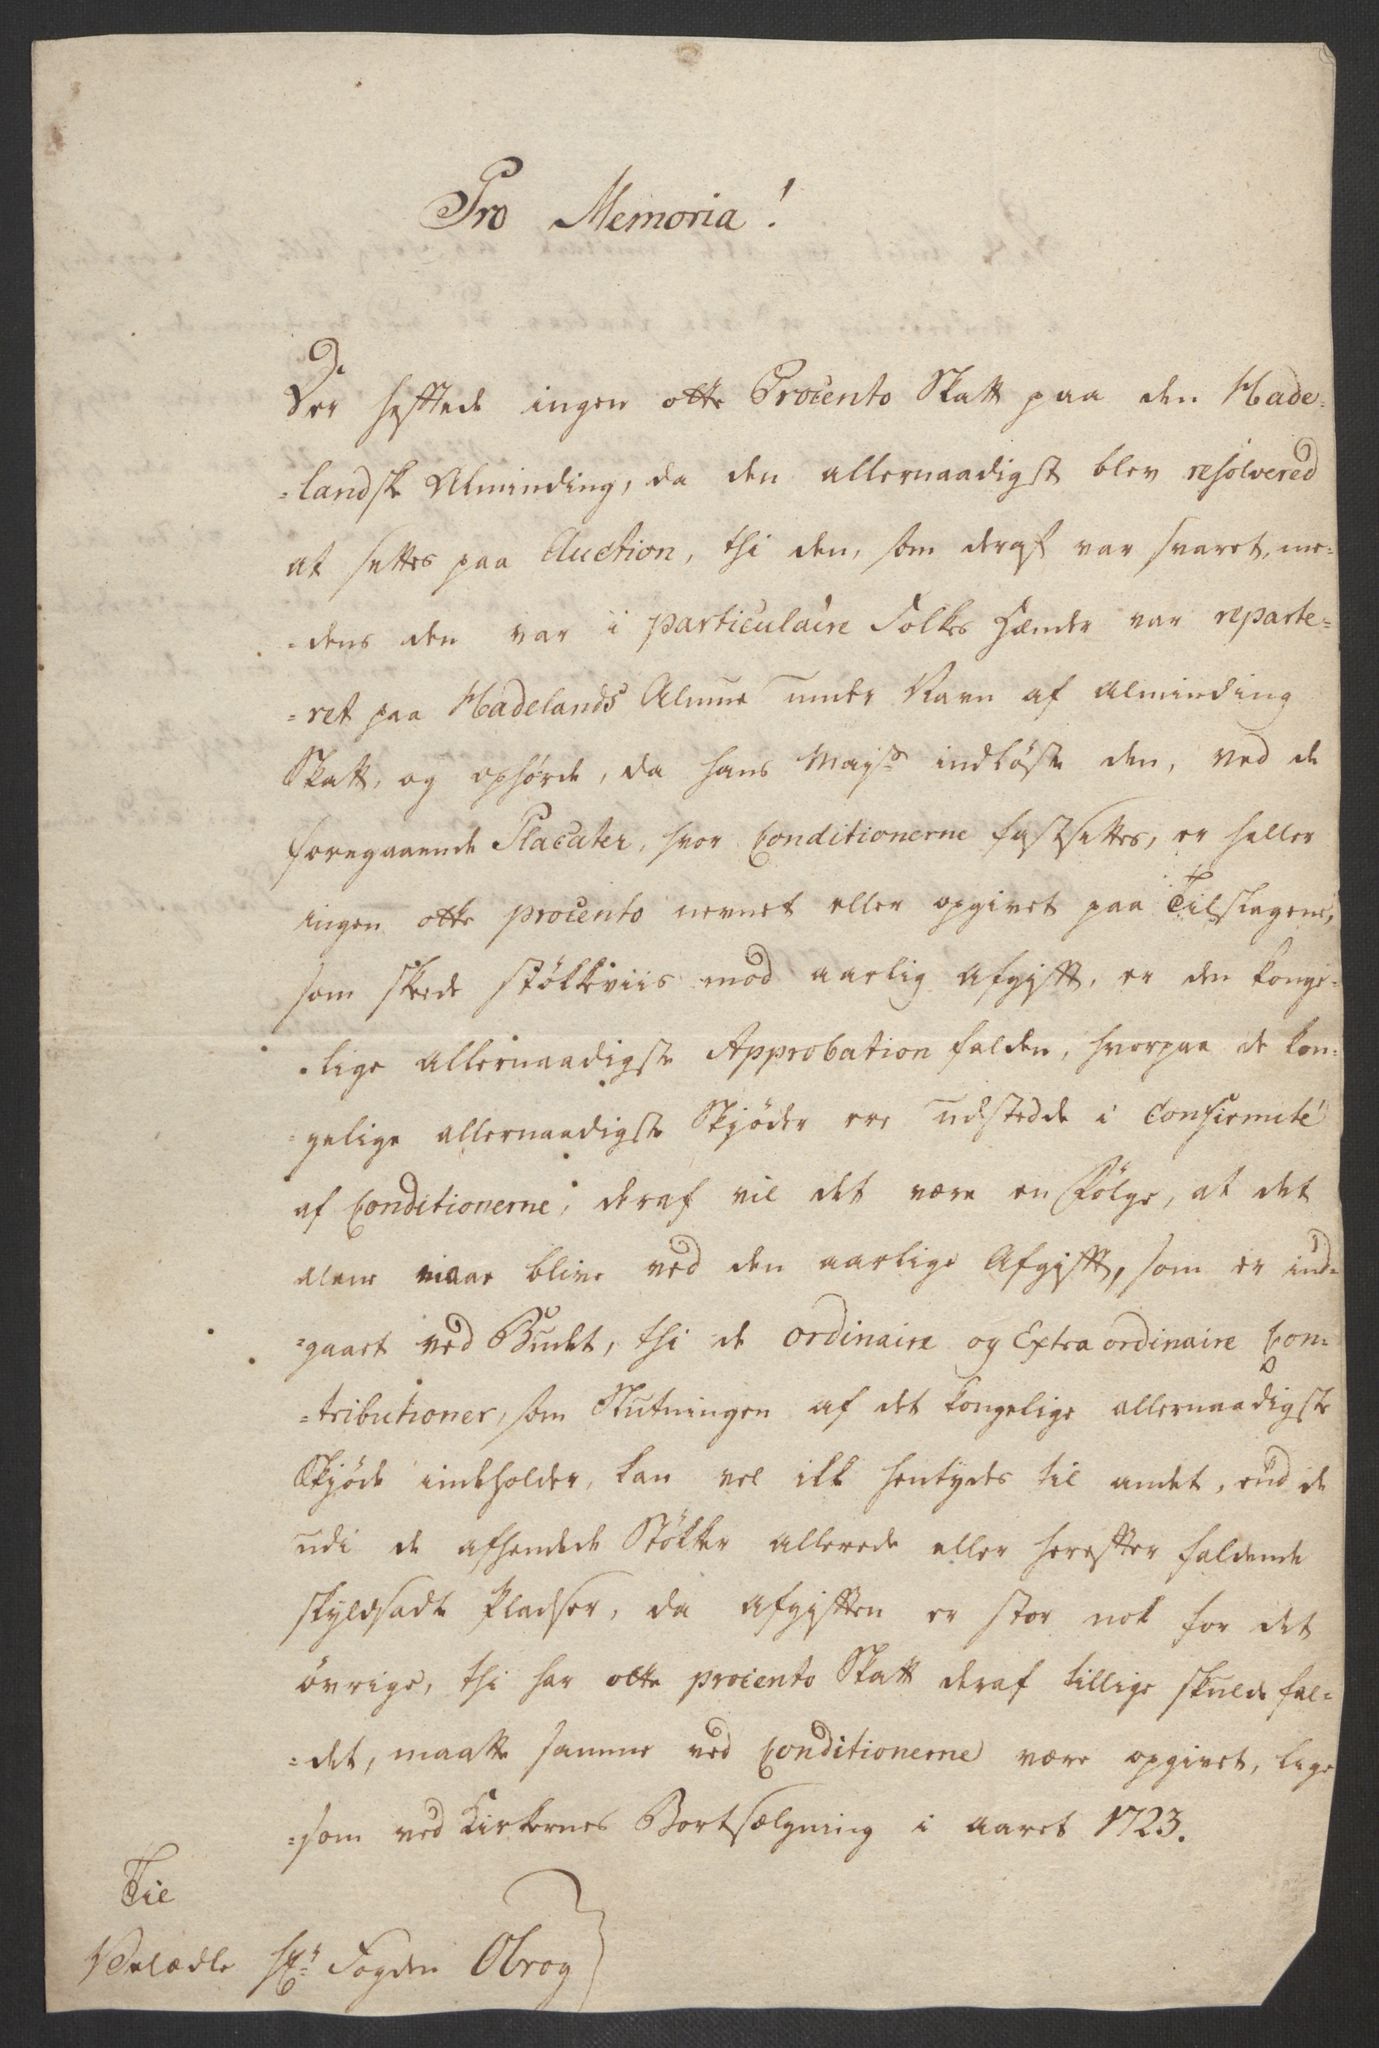 Pro Memoria!
Der heftede ingen otte Procento Skatt paa den Hade-
=landske Alminding, da den allernaadigst blev resolvered
at settes paa Auction, thi den, som deraf var svaret, me-
=dens den var i particulaire Folkes Hænder var reparte-
=ret paa Hadelands Almue under Navn af Alminding
Skatt, og ophørde, da hans Mayst: indløste den, ved de
foregaaende Placater, hvor Conditionerne fastsættes, er heller
ingen otte procento nevnet eller opgivet paa Tilslagene,
som skede støkkeviis mod aarlig Afgift, er den konge-
=lige allernaadigste Approbation falden, hvorpaa de kon-
=gelige allernaadigste Skjøder ere udstedde i Confirmité
af Conditionerne, deraf vil det være en Følge, at det
alene maae blive ved den aarlige Afgift, som er ind-
=gaaet ved Budet, thi de ordinaire og Extra ordinaire Con-
=tributioner, som Slutningen af det kongelige allernaadigste
Skjøde indeholder, kan vel ikke hentydes til andet, end de
udi de afhendede Støkker allerede eller herefter faldende
skyldsadte Pladser, da Afgiften er stor nok for det
øvrige, thi har otte procento Skatt deraf tillige skulde fal-
=det, maatte samme ved Conditionerne være opgivet, lige
=som ved Kirkernes Bortsælgning i Aaret 1723.
Til
Velædle Hr: Fogden Obrog